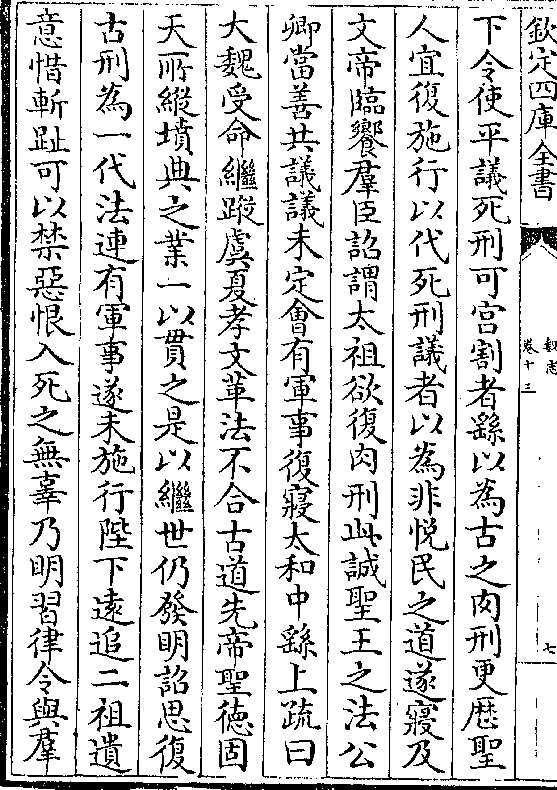 欽定四庫全書
魏志
卷十三
七
下令使平議死刑可宫割者繇以為古之肉刑更歴聖
人宜復施行以代死刑議者以為非悦民之道遂寢及
文帝臨饗羣臣詔謂太祖欲復肉刑此誠聖王之法公
卿當善共議議未定會有軍事復寢太和中繇上疏曰
大魏受命繼蹤虞夏孝文革法不合古道先帝聖徳固
天所縱墳典之業一以貫之是以繼世仍發明詔思復
古刑為一代法連有軍事遂未施行陛下遠追二祖遺
意惜斬趾可以禁惡恨入死之無辜乃明習律令與羣